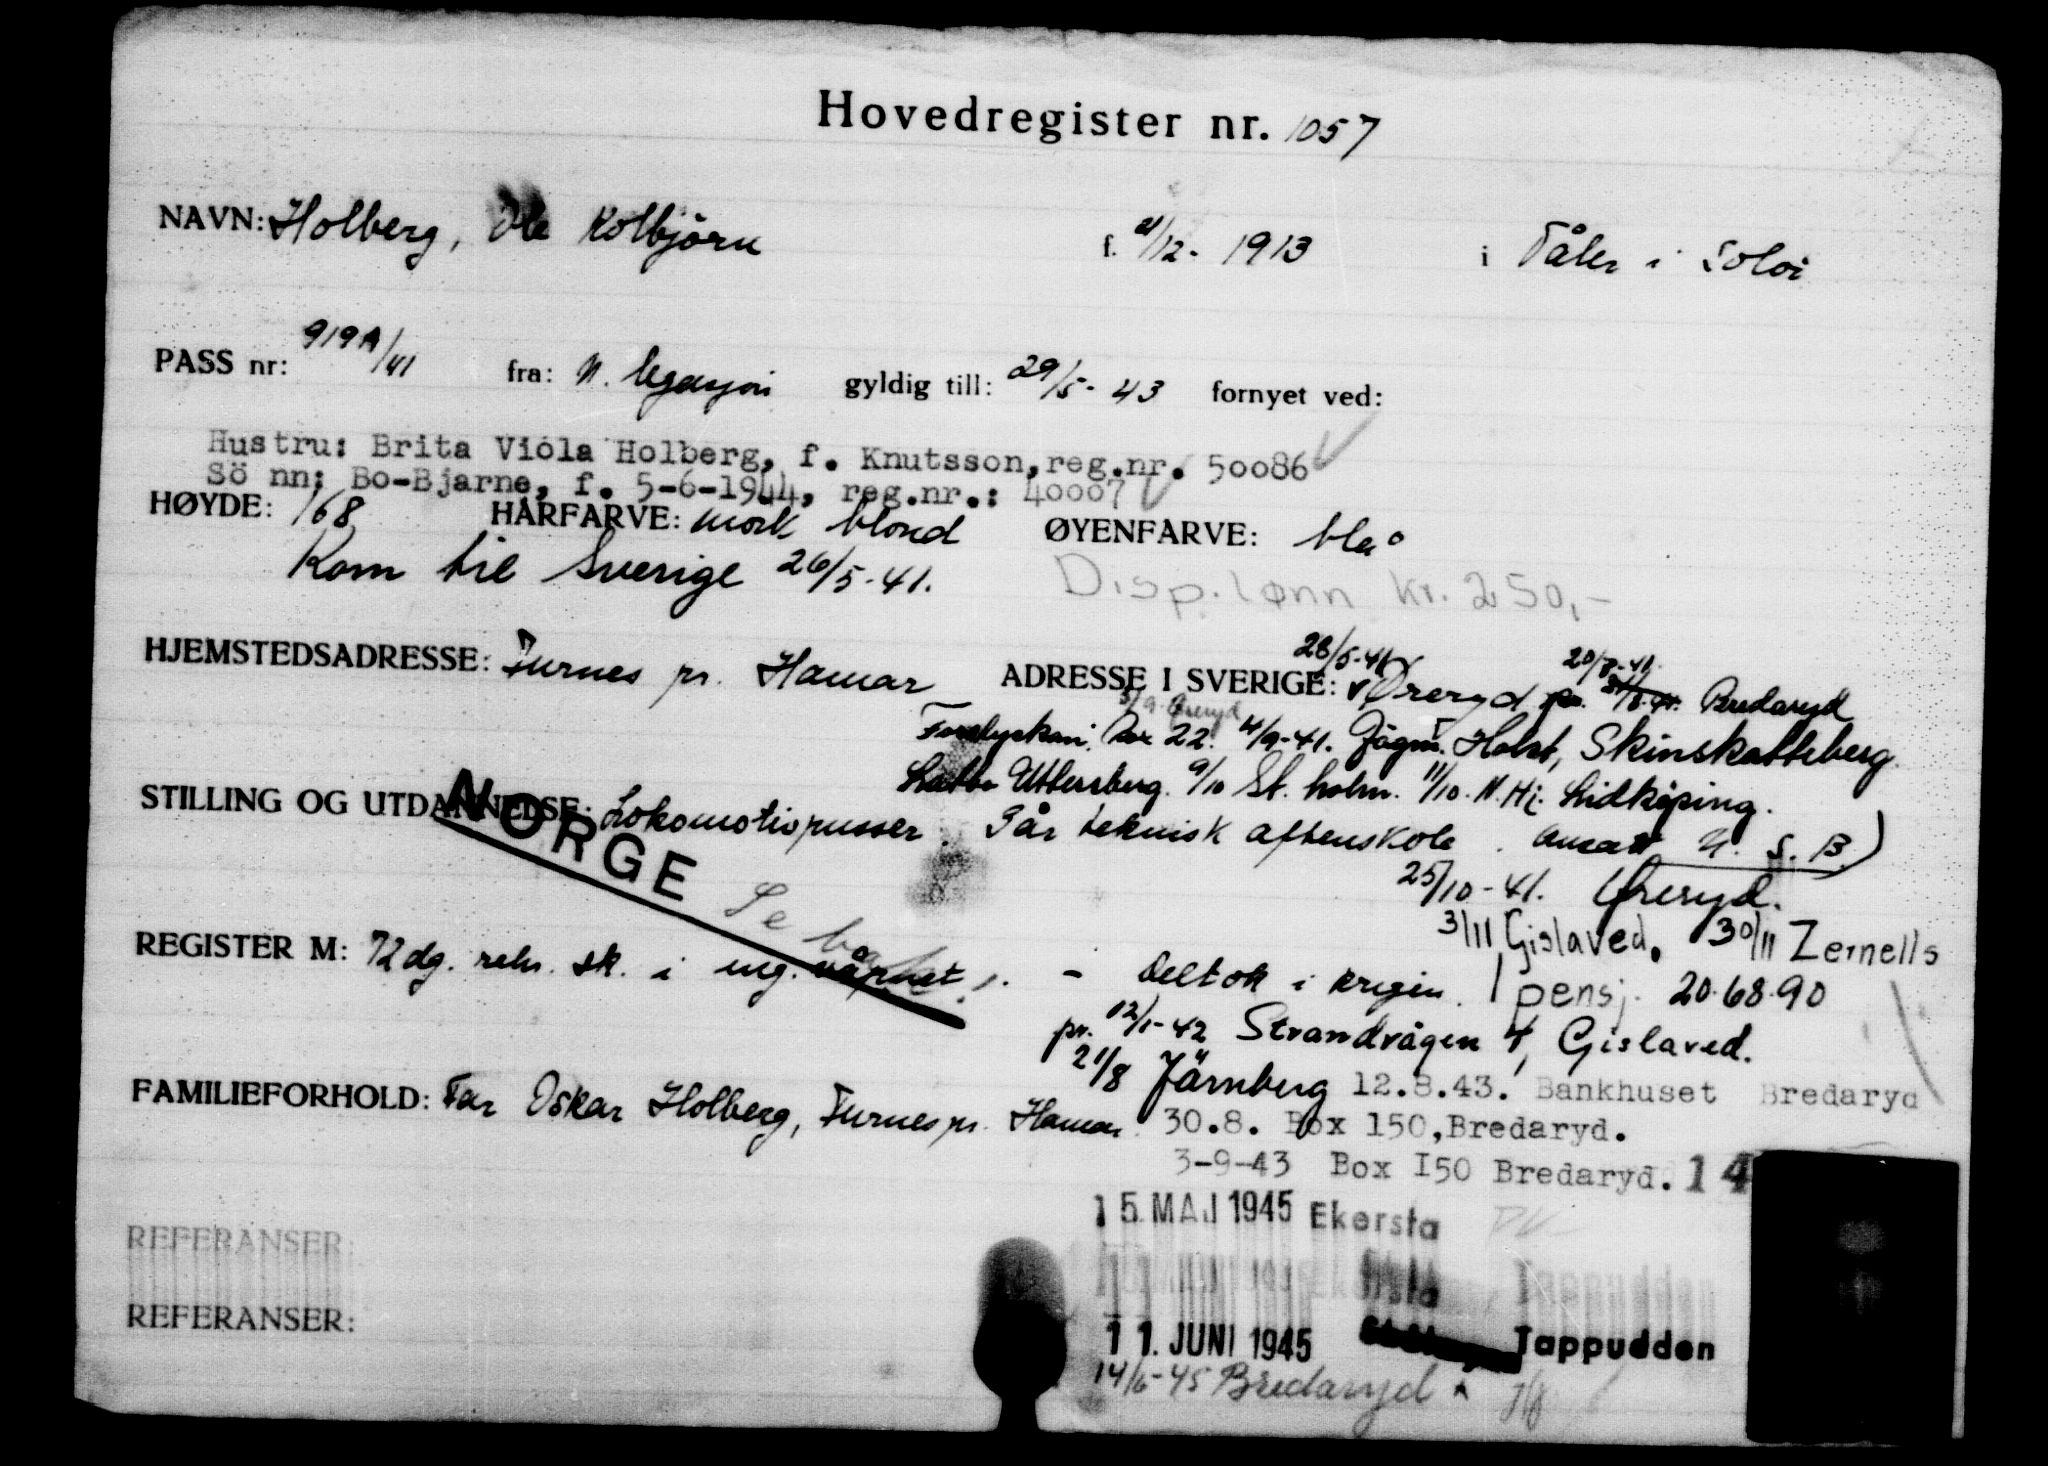 Hovedregister nr. 1057
NAVN: Holberg, Ole Kolbjörn f. 21/12- 1913 i Våler i Solör
PASS nr: 919A/41 fra: N. legasjon gyldig till: 29/5- 43 fornyet ved:
Hustru: Brita Vióla Holberg, f. Knutsson, reg.nr. 50086
Sö nn: Bo-Bjarne, f. 5-6-1944, reg.nr.: 40007
HØYDE: 168 HÅRFARVE: mörk blond ØYENFARVE: blå
Kom til Sverige 26/5-41. Disp. lønn kr. 250,-
28/5-41 20/8-41.
HJEMSTEDSADRESSE: Furnes pr. Hamar ADRESSE I SVERIGE: Öreryd pr. Bredaryd
5/9 Öreryd
Box 22. 4/9-41. Jägm. Holst, Skinskatteberg
Uttersberg. 9/10 St. holm. 11/10. N. Hj. Lidköping.
STILLING OG UTDANNELSE: Lokomotivpusser. 3 år teknisk aftenskole. Ansatt U. S. B)
NORGE
25/10-41. Öreryd.
Se bak!
3/11 Gislaved. 30/11 Zernells
REGISTER M: 72 dg. rekr. sk. i ing. våpnet. - Deltok i krigen. pensj. 20.68.90
pr. 12/1-42 Strandvägen 4, Gislaved.
21/8 Järnberg 12.8.43. Bankhuset Bredaryd
FAMILIEFORHOLD: Far Oskar Holberg, Furnes pr. Hamar. 30.8. Box 150, Bredaryd.
3-9-43 Box I50 Bredaryd. 14
15. MAJ 1945 Ekersta
REFERANSER:
REFERANSER:
11. JUNI 1945 Tappudden
14/6-45 Bredaryd